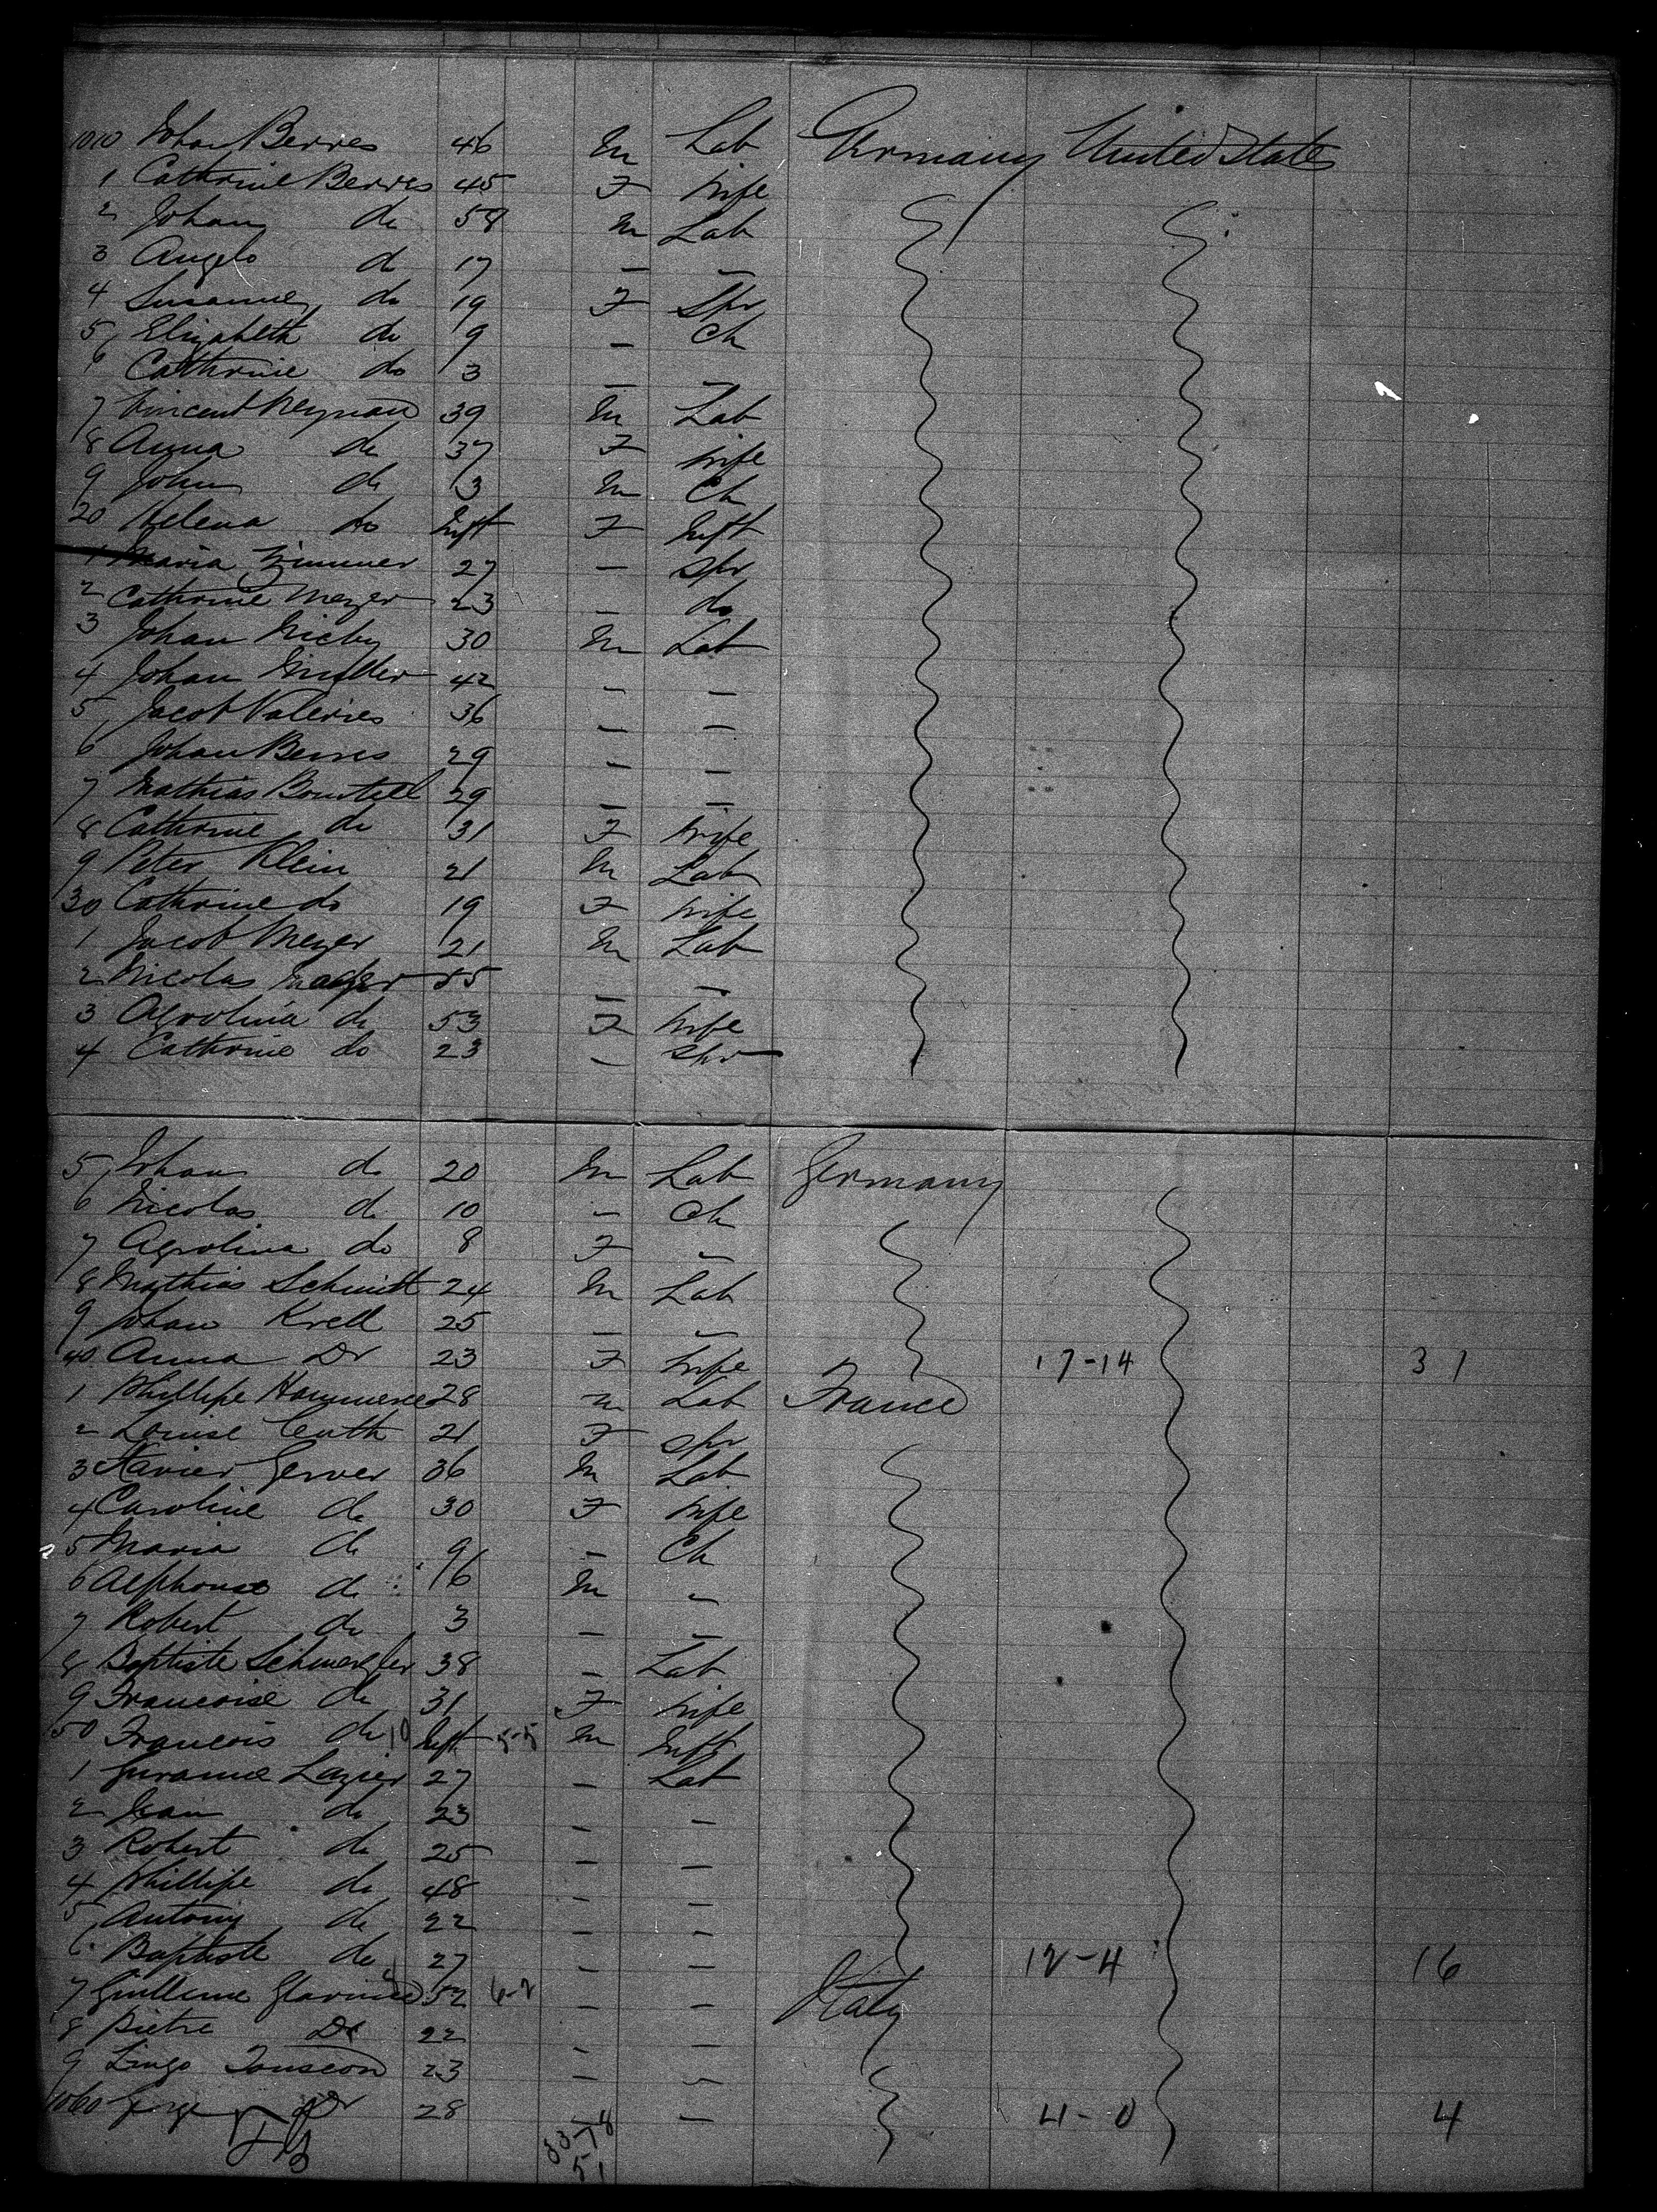 1010 Johan Berres 46 M Lab Germany United States
1 Cathrine Berres 45 F Wife
2 Johan do 58 M Lab
3 Angelo do 17 – –
4 Susanne do 19 F Spr
5 Elizabeth do 9 – Ch
6 Cathrine do 3 – –
7 Vincent 39 M Lab
8 Anna do 37 F Wife
9 John do 13 M Ch
20 Helena do Inft F Inft
1 Maria Zimmer 27 – Spr
2 Cathrine Meyer 23 – do
3 Johan 30 M Lab
4 Johan 42 – –
5 Jacob Valeries 36 – –
6 Johan Berres 29 – –
7 Mathias 29 – –
8 Cathrine do 31 F Wife
9 Peter Klein 21 M Lab
30 Cathrine do 19 F Wife
1 Jacob Meyer 21 M Lab
2 Nicolas 55 – –
3 Agrolina do 53 F Wife
4 Cathrine do 23 – Spr
5 Johan do 20 M Lab Germany
6 Nicolas do 10 – Ch
7 Agrolina do 8 F –
8 Mathias Schmitt 24 M Lab
9 Johan Krell 25 – –
40 Anna Do 23 F Wife 17-14 31
1 Phillipe 28 M Lab France
2 Louise 21 F Spr
3 Xavier Gerver 36 M Lab
4 Caroline do 30 F Wife
5 Maria do 9 – Ch
6 Alphonse do 6 M –
7 Robert do 3 – –
8 Baptiste 38 – Lab
9 Francoise do 31 F Wife
50 Francois do 10 Inft 5-5 M Inft
1 Lazier 27 – Lab
2 Jean do 23 – –
3 Robert do 25 – –
4 Phillipe do 48 – –
5 Antony do 22 – –
6 Baptiste do 27 – – 12-4 16
7 Guilleme 52 6-2 – – Italy
8 Pietre Do 22 – –
9 23 – –
1060 Do 28 – 4-0 4
33-18
51